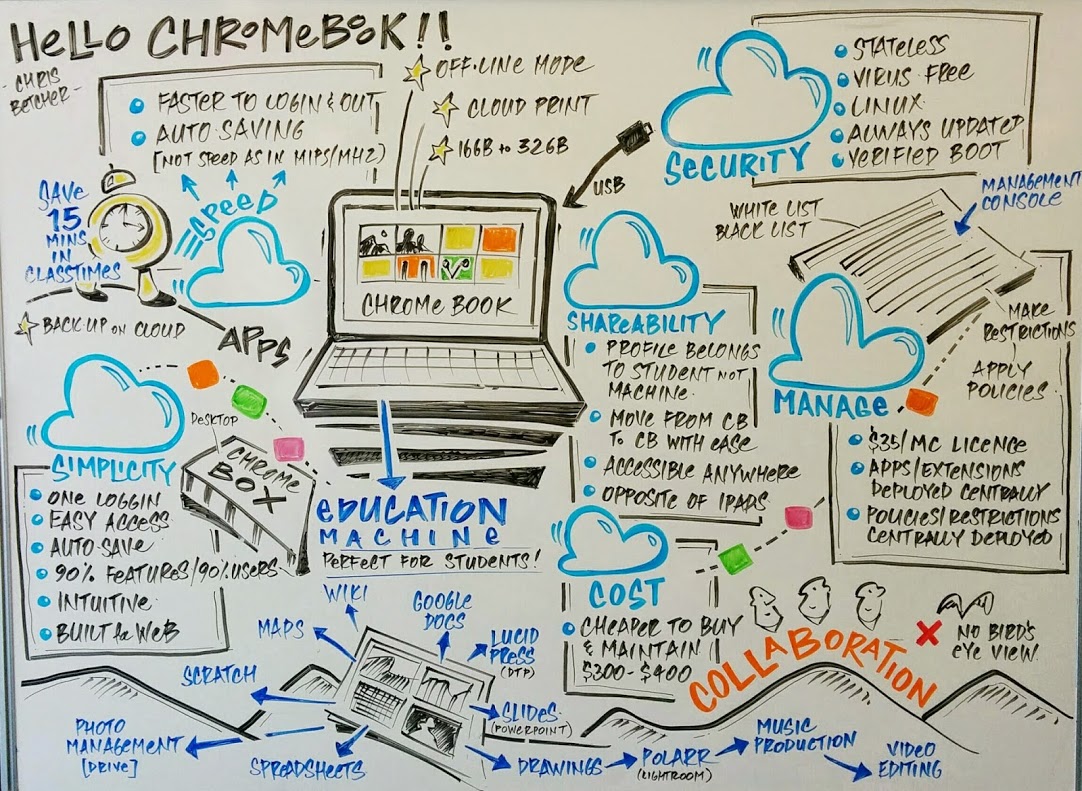 HELLO CHROMEBOOK!!
- CHRIS
BETCHER -
FASTER TO LOGIN & OUT
AUTO SAVING
[NOT SPEED AS IN MIPS/MHZ]
SPEED
SAVE
15
MINS
IN
CLASSTIMES
BACK-UP ON CLOUD
OFF-LINE MODE
CLOUD PRINT
16GB to 32GB
USB
CHROME BOOK
APPS
SECURITY
STATELESS
VIRUS FREE
LINUX
ALWAYS UPDATED
VERIFIED BOOT
MANAGEMENT
CONSOLE
WHITE LIST
BLACK LIST
MAKE
RESTRICTIONS
APPLY
POLICIES
MANAGE
$35/MC LICENCE
APPS/EXTENSIONS
DEPLOYED CENTRALLY
POLICIES/RESTRICTIONS
CENTRALLY DEPLOYED
SHAREABILITY
PROFILE BELONGS
TO STUDENT NOT
MACHINE.
MOVE FROM CB
To CB WITH EASE
ACCESSIBLE ANYWHERE
OPPOSITE OF IPADS
SIMPLICITY
ONE LOGGIN
EASY ACCESS
AUTO-SAVE
90% FEATURES/90% USERS
INTUITIVE
BUILT for WEB
DESKTOP
CHROME
BOX
EDUCATION
MACHINE
PERFECT FOR STUDENTS!
COST
CHEAPER TO BUY
& MAINTAIN
$300-$400
COLLABORATION
NO BIRD'S
EYE VIEW.
WIKI
GOOGLE
DOCS
MAPS
LUCID
PRESS
(DTP)
SCRATCH
SLIDES
(POWERPOINT)
PHOTO
MANAGEMENT
[DRIVE]
SPREADSHEETS
DRAWINGS
POLARR
(LIGHTROOM)
MUSIC
PRODUCTION
VIDEO
EDITING